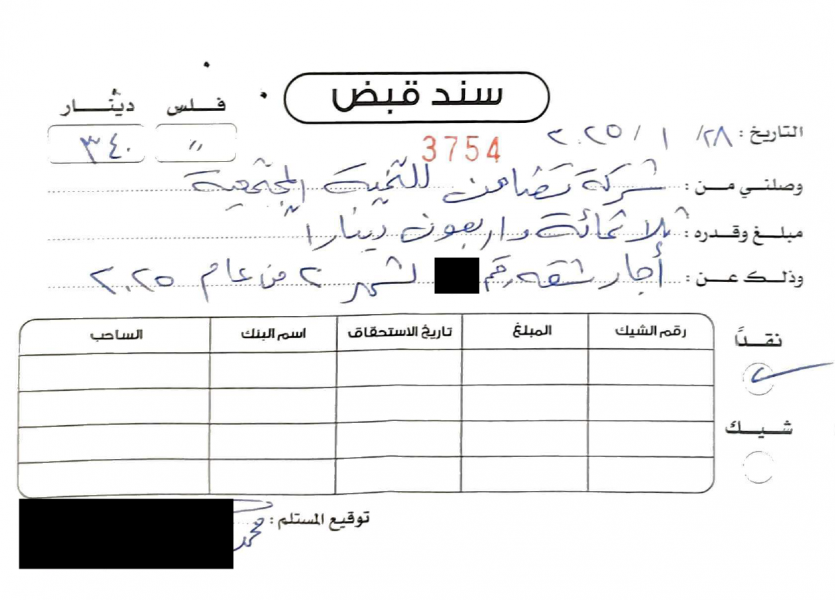 سند قبض
دينار فلس
٣٤٠ //
التاريخ : ٢٨/ ١ /٢٠٢٥
3754
وصلني من : شركة تضامن للتنمية المجتمعية
مبلغ وقدره : ثلاثمائة واربعون ديناراً
وذلك عن : أجار شقه رقم لشهر ٢ من عام ٢٠٢٥
رقم الشيك المبلغ تاريخ الاستحقاق اسم البنك الساحب
نقداً
شيك
توقيع المستلم : محمد